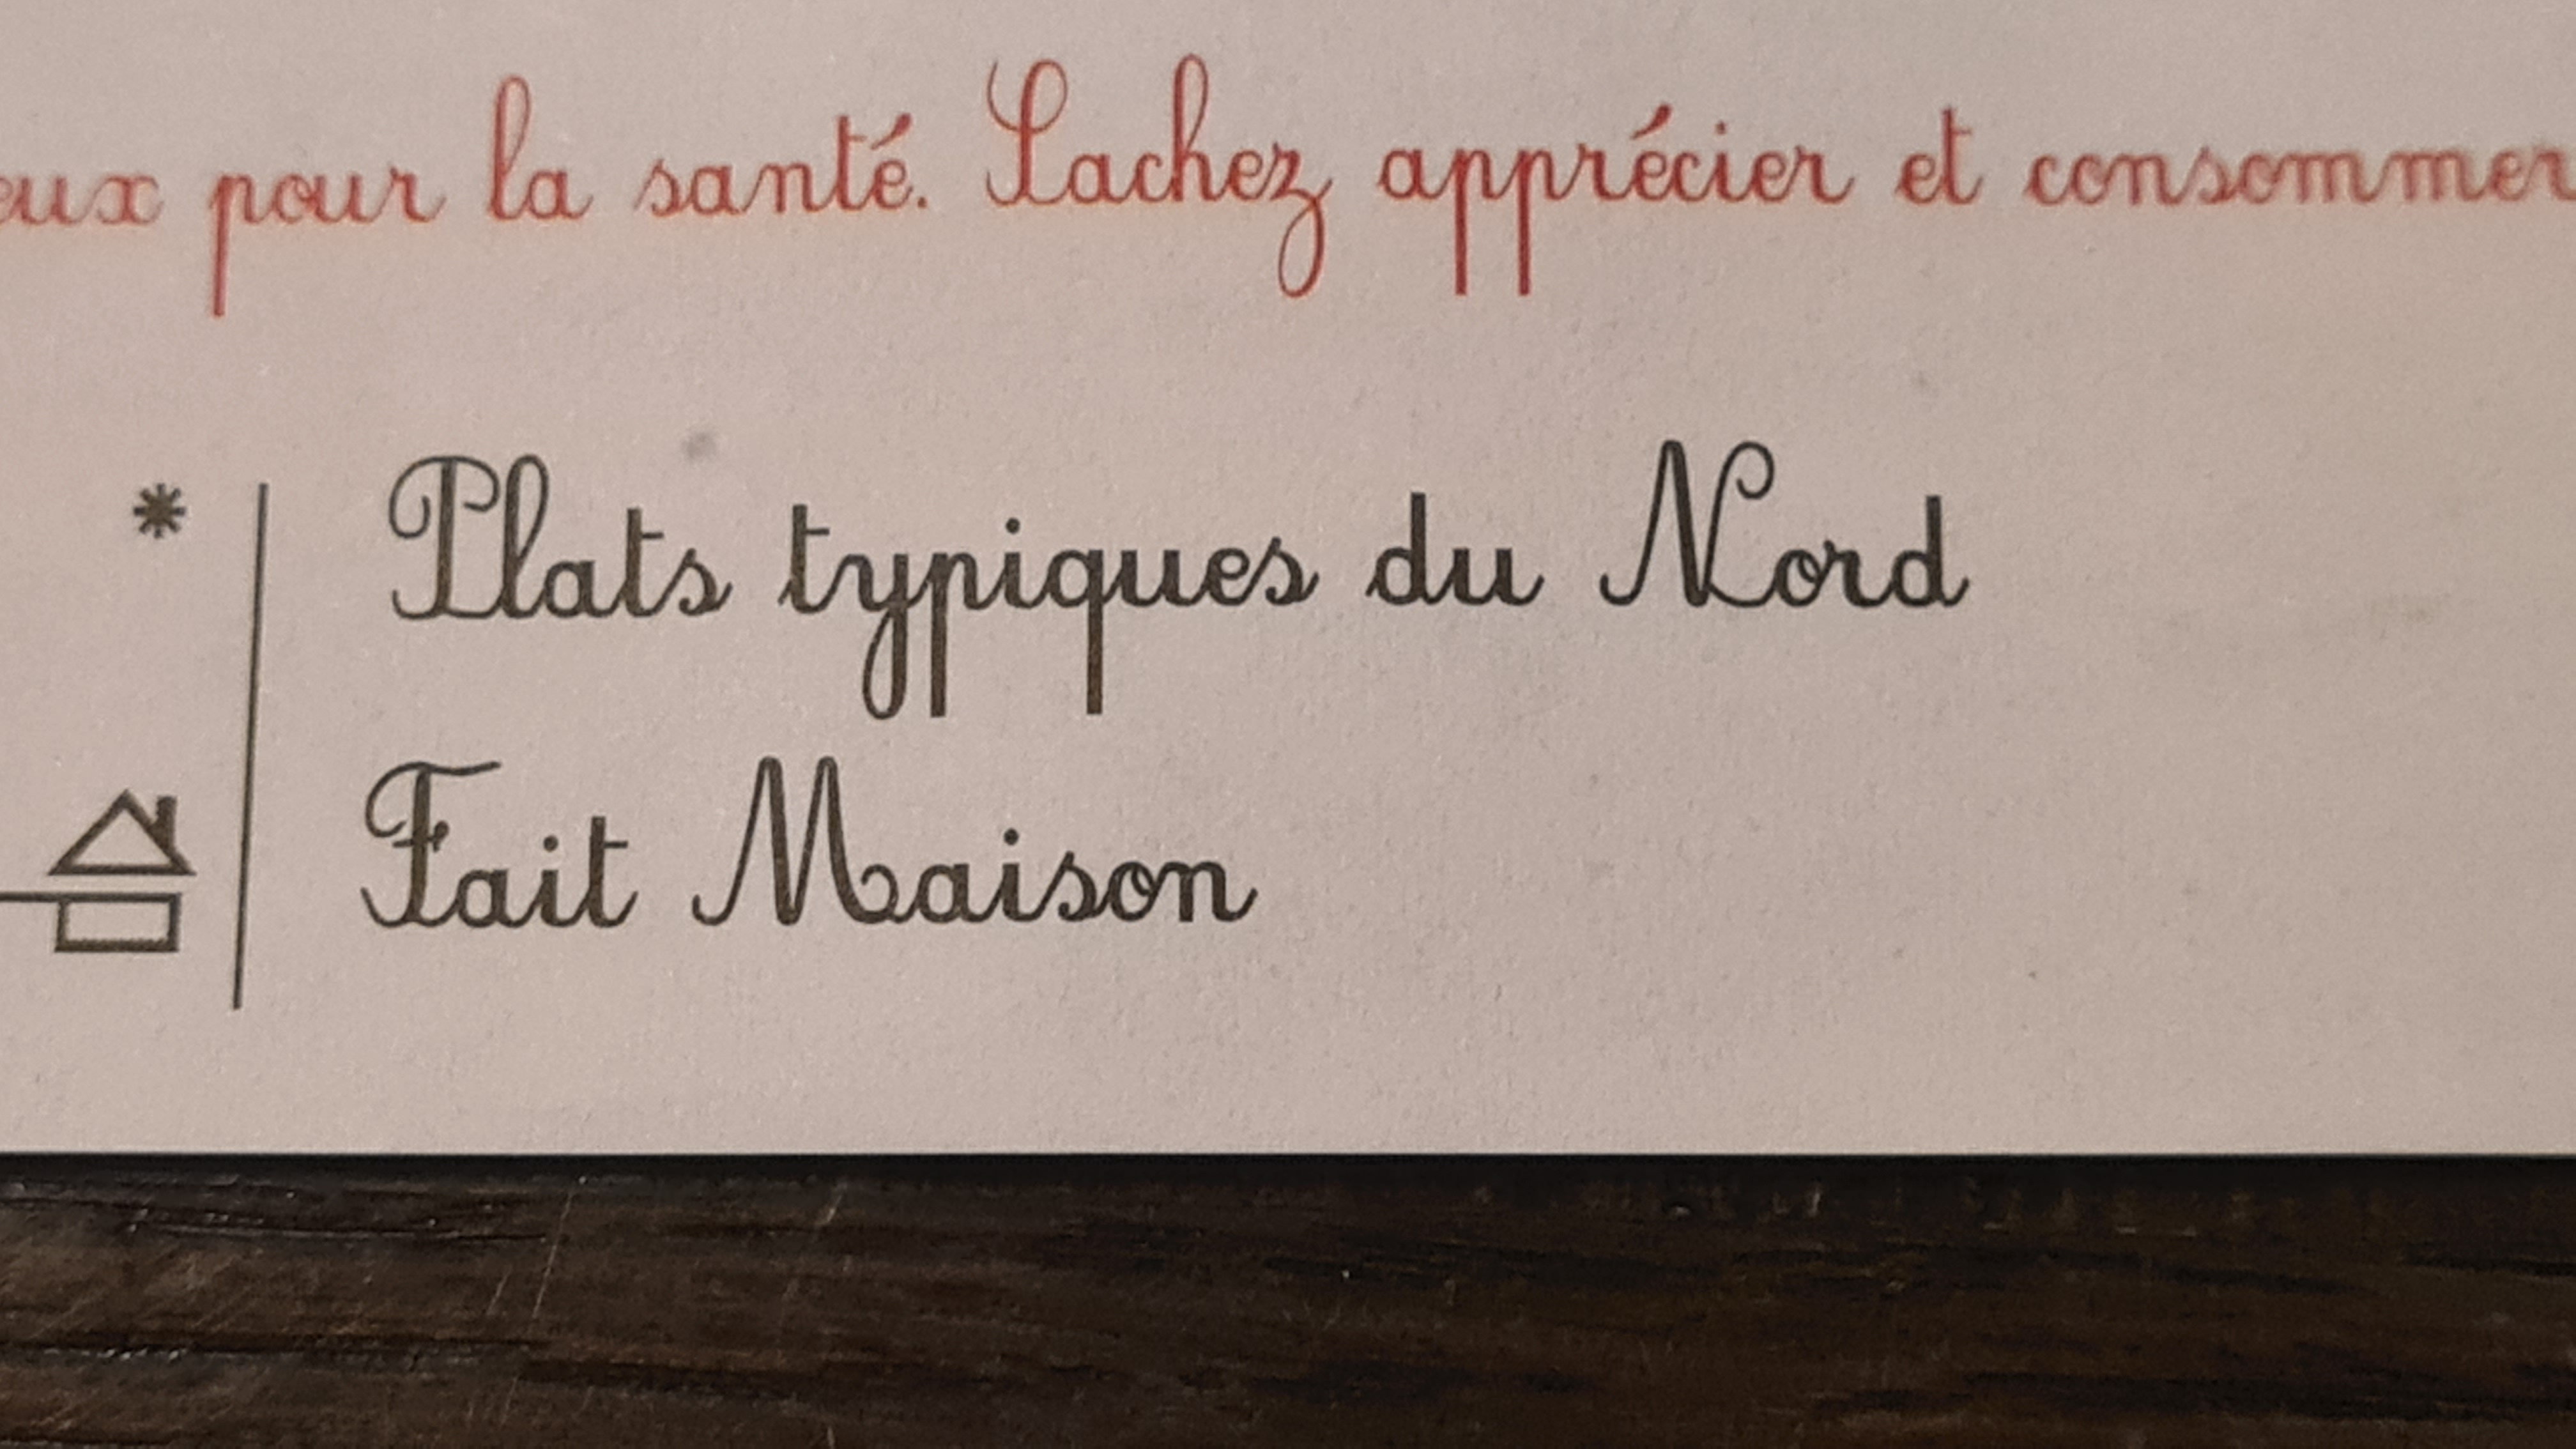 eux pour la santé. Sachez apprécier et consommer
* Plats typiques du Nord
Fait Maison